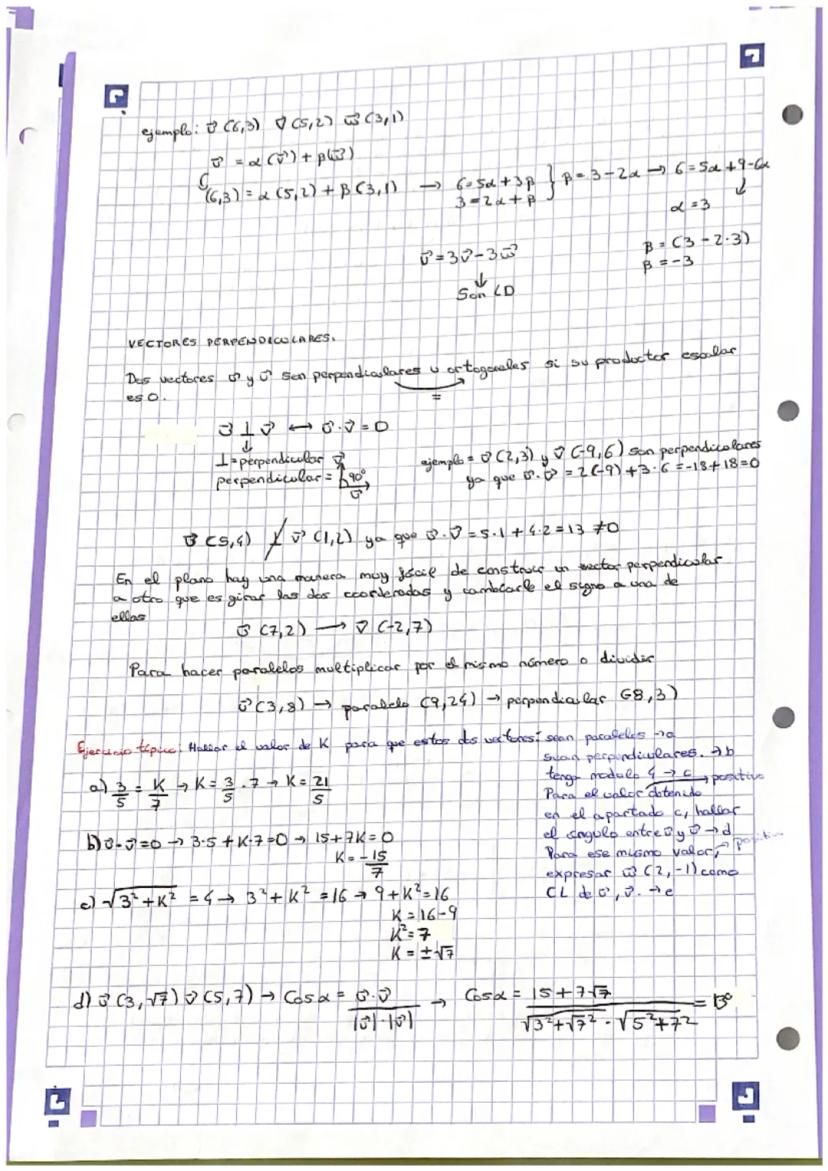 ejemplo: u⃗ (6,3) v⃗ (5,2) w⃗ (3,1)
u⃗ = α(v⃗) + β(w⃗)
(6,3) = α(5,2) + β(3,1) → 6=5α+3β } β=3-2α → 6=5α+9-6α
3=2α+β
α=3
β=(3-2·3)
β=-3
u⃗=3v⃗-3w⃗
↓
Son LD
VECTORES PERPENDICULARES.
Dos vectores u⃗ y v⃗ son perpendiculares u ortogonales si su productor escalar
es 0.
u⃗ ⊥ v⃗ ↔ u⃗·v⃗=0
↓
⊥=perpendicular v⃗
perpendicular= 90° u⃗
ejemplo= u⃗(2,3) y v⃗(-9,6) son perpendiculares
ya que u⃗·v⃗=2(-9)+3·6=-18+18=0
u⃗(5,4) ⊥̸ v⃗(1,2) ya que u⃗·v⃗=5·1+4·2=13≠0
En el plano hay una manera muy fácil de construir un vector perpendicular
a otro que es girar las dos coordenadas y cambiarle el signo a una de
ellas
u⃗(7,2) → v⃗(-2,7)
Para hacer paralelos multiplicar por el mismo número o dividir
u⃗(3,8) → paralelo (9,24) → perpendicular (-8,3)
Ejercicio típico: Hallar el valor de K para que estos dos vectores: sean paralelos →a
sean perpendiculares. →b
tenga modulo 4 →c
positivo
Para el valor obtenido
en el apartado c, hallar
el ángulo entre u⃗ y v⃗ →d
Para ese mismo valor, → positivo
expresar w⃗(2,-1) como
CL de u⃗, v⃗. →e
a) 3/5 = K/7 → K=3/5·7 → K=21/5
b) u⃗·v⃗=0 → 3·5+K·7=0 → 15+7K=0
K=-15/7
c) √3²+K² =4 → 3²+K²=16 → 9+K²=16
K=16-9
K²=7
K=±√7
d) u⃗(3,√7) v⃗(5,7) → Cosα= u⃗·v⃗/|u⃗|·|v⃗| → Cosα= 15+7√7/√3²+√7² · √5²+7² = 13°